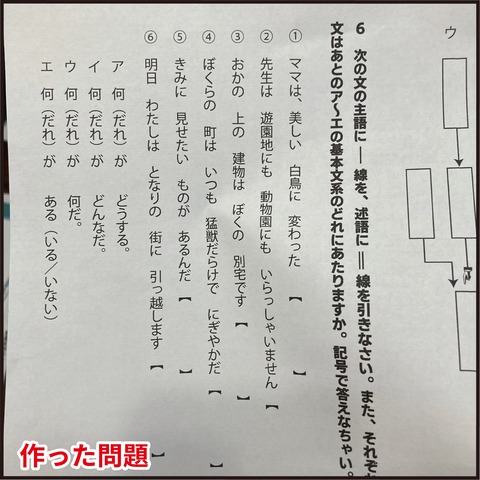 ウ
6 次の文の主語に ― 線を、述語に ＝ 線を引きなさい。また、それぞれ
文はあとのア～エの基本文系のどれにあたりますか。記号で答えなちゃい。
① ママは、美しい 白鳥に 変わった 【 】
② 先生は 遊園地にも 動物園にも いらっしゃいません 【 】
③ おかの 上の 建物は ぼくの 別宅です 【 】
④ ぼくらの 町は いつも 猛獣だらけで にぎやかだ 【 】
⑤ きみに 見せたい ものが あるんだ 【 】
⑥ 明日 わたしは となりの 街に 引っ越します 【 】
ア 何（だれ）が どうする。
イ 何（だれ）が どんなだ。
ウ 何（だれ）が 何だ。
エ 何（だれ）が ある（いる／いない）
作った問題